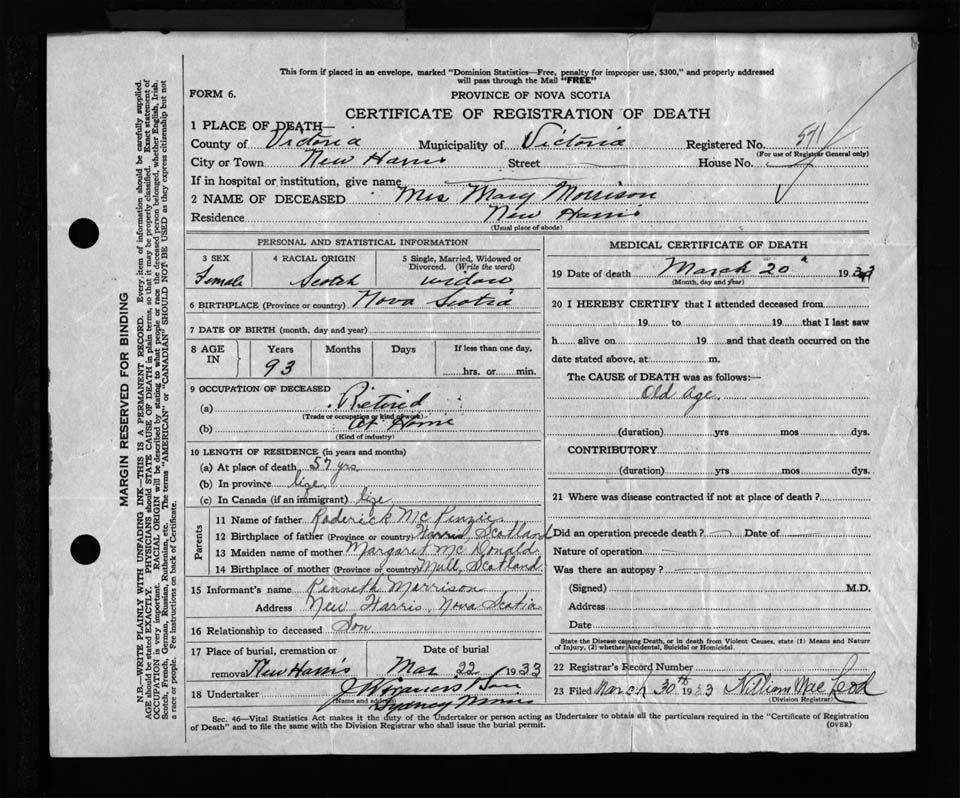 This form if placed in an envelope, marked "Dominion Statistics—Free, penalty for improper use, $300," and properly addressed
will pass through the Mail "FREE"
FORM 6.
PROVINCE OF NOVA SCOTIA
CERTIFICATE OF REGISTRATION OF DEATH
1 PLACE OF DEATH—
County of Victoria Municipality of Victoria Registered No. 571
(For use of Registrar General only)
City or Town New Harris Street House No.
If in hospital or institution, give name
2 NAME OF DECEASED Mrs Mary Morrison
Residence New Harris
(Usual place of abode)
PERSONAL AND STATISTICAL INFORMATION
3 SEX 4 RACIAL ORIGIN 5 Single, Married, Widowed or
Divorced. (Write the word)
Female Scotch widow
6 BIRTHPLACE (Province or country) Nova Scotia
7 DATE OF BIRTH (month, day and year)
8 AGE IN Years Months Days If less than one day,
93 hrs. or min.
9 OCCUPATION OF DECEASED
(a) Retired
(Trade or occupation or kind of work)
(b) At Home
(Kind of industry)
10 LENGTH OF RESIDENCE (in years and months)
(a) At place of death 57 yrs.
(b) In province life
(c) In Canada (if an immigrant) life
Parents
11 Name of father Roderick McKinzie
12 Birthplace of father (Province or country) Harris Scotland
13 Maiden name of mother Margaret McDonald
14 Birthplace of mother (Province or country) Mull, Scotland
15 Informant's name Kenneth Morrison
Address New Harris, Nova Scotia
16 Relationship to deceased Son
17 Place of burial, cremation or Date of burial
removal New Harris Mar 22 1933
18 Undertaker
(Name and address) Sydney Mines
MEDICAL CERTIFICATE OF DEATH
19 Date of death March 20th 1933
(Month, day and year)
20 I HEREBY CERTIFY that I attended deceased from
19 to 19 that I last saw
h alive on 19 and that death occurred on the
date stated above, at m.
The CAUSE of DEATH was as follows:—
Old Age.
(duration) yrs mos dys.
CONTRIBUTORY
(duration) yrs mos dys.
21 Where was disease contracted if not at place of death ?
Did an operation precede death ? Date of
Nature of operation
Was there an autopsy ?
(Signed) M.D.
Address
Date
State the Disease causing Death, or in death from Violent Causes, state (1) Means and Nature
of Injury, (2) whether Accidental, Suicidal or Homicidal.
22 Registrar's Record Number
23 Filed March 30th 1933 William MacLeod
(Division Registrar)
Sec. 46—Vital Statistics Act makes it the duty of the Undertaker or person acting as Undertaker to obtain all the particulars required in the "Certificate of Registration
of Death" and to file the same with the Division Registrar who shall issue the burial permit.
(OVER)
MARGIN RESERVED FOR BINDING
N.B.—WRITE PLAINLY WITH UNFADING INK—THIS IS A PERMANENT RECORD. Every item of information should be carefully supplied.
AGE should be stated EXACTLY. PHYSICIANS should STATE CAUSE OF DEATH in plain terms, so that it may be properly classified. Exact statement of
OCCUPATION is very important. RACIAL ORIGIN will be described by stating to what people or race the deceased person belonged, whether English, Irish,
Scotch, French, German, Russian, Ruthenian, etc. The terms "AMERICAN" or "CANADIAN" SHOULD NOT BE USED as they express citizenship but not
a race or people. See instructions on back of Certificate.